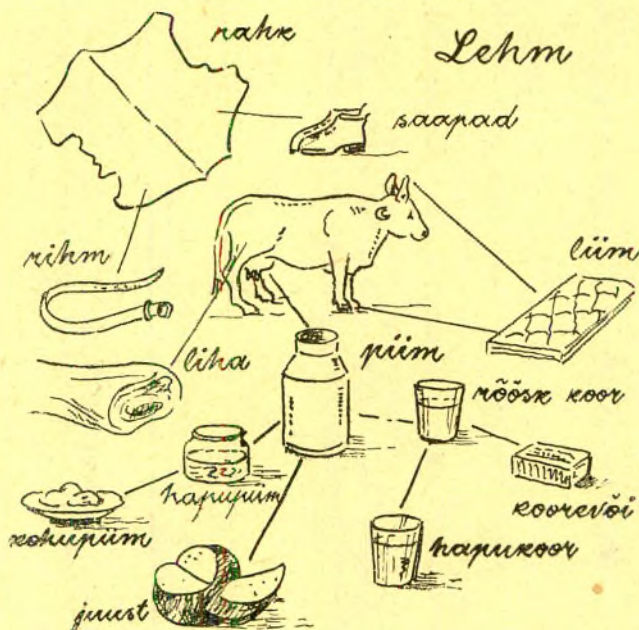 nahk
Lehm
saapad
rihm
liim
liha
piim
rõõsk koor
hapupiim
koorevõi
kohupiim
hapukoor
juust